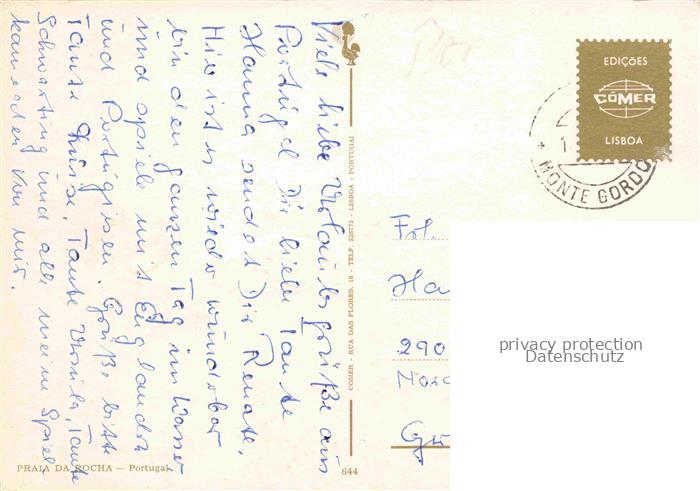 Viele liebe Urlaubsgrüße aus
Portugal Dir liebe Tante
Hanna sendet Dir Renate.
Hier ist es wieder wunderbar
bin den ganzen Tag im Wasser
und spiele mit Engländer
und Portugisen. Grüße bitte
Tante Tante Ursula, Tante
Schwarting und alle meine Spiel
kameraden von mir.
PRAIA DA ROCHA — Portugal
644
COMER - RUA DAS FLORES, 18 - TELF. - LISBOA - PORTUGAL
EDIÇÕES
CÔMER
LISBOA
MONTE GORDO
Frl.
Ha
290
Nord
privacy protection
Datenschutz